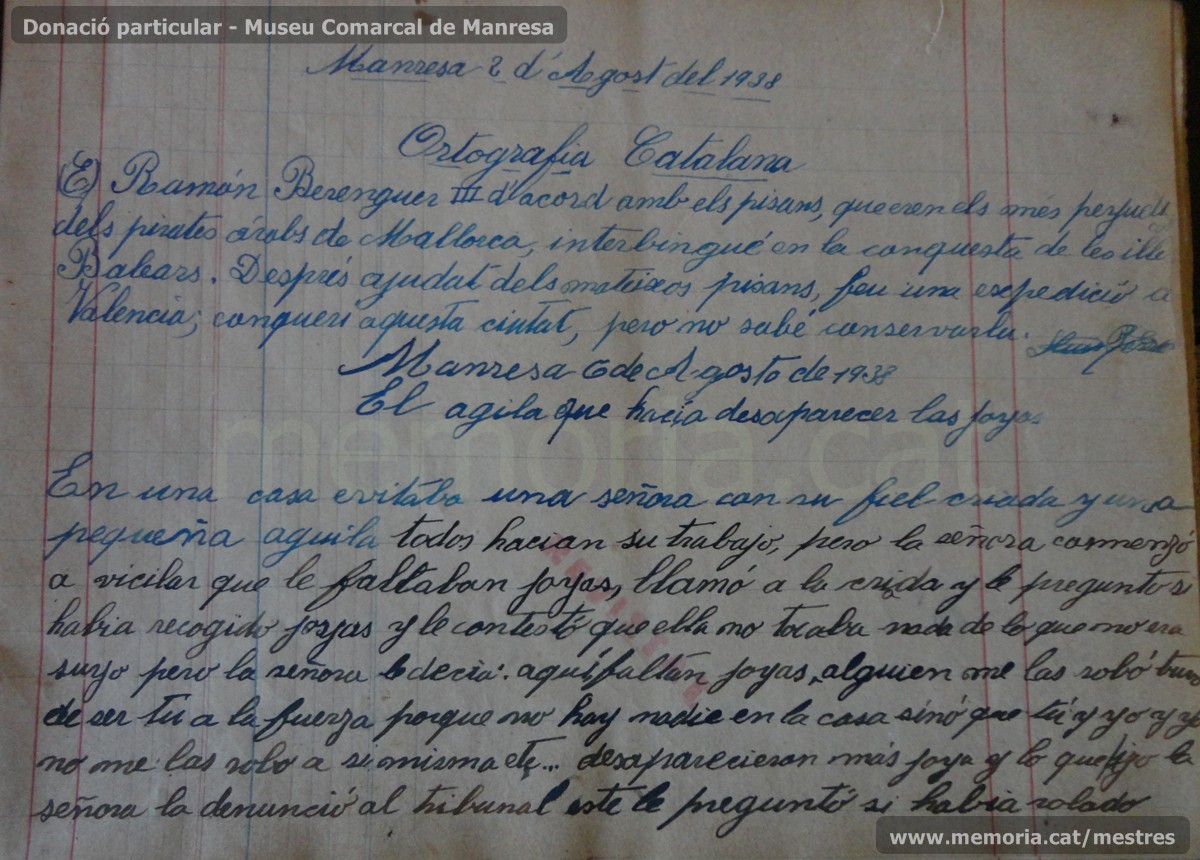 Donació particular - Museu Comarcal de Manresa
Manresa 2 d'Agost del 1938
Ortografia Catalana
(E) Ramón Berenguer III d'acord amb els pisans, que eren els més perjud
dels pirates árabs de Mallorca, interbingué en la conquesta de les ille
Balears. Després ajudat dels mateixos pisans, feu una expedició a
Valencia; conquerí aquesta ciutat, pero no sabé conservarla.
Manresa 6 de Agosto de 1938
El agila que hacía desaparecer las joyas
En una casa evitaba una señora con su fiel criada y una
pequeña aguila todos hacian su trabajo, pero la señora comenzó
a vicilar que le faltaban joyas, llamó a la criada y le pregunto si
habia recogido joyas y le contestó que ella no tocaba nada de lo que no era
suyo pero la señora le decia: aquí faltan joyas, alguien me las robó
de ser tu a la fuerza porque no hay nadie en la casa sinó que tú y yo y yo
no me las robo a si misma etc... desaparecieron más joya y lo que hizo la
señora la denunció al tribunal este le preguntó si habia robado
memoria.cat
www.memoria.cat/mestres